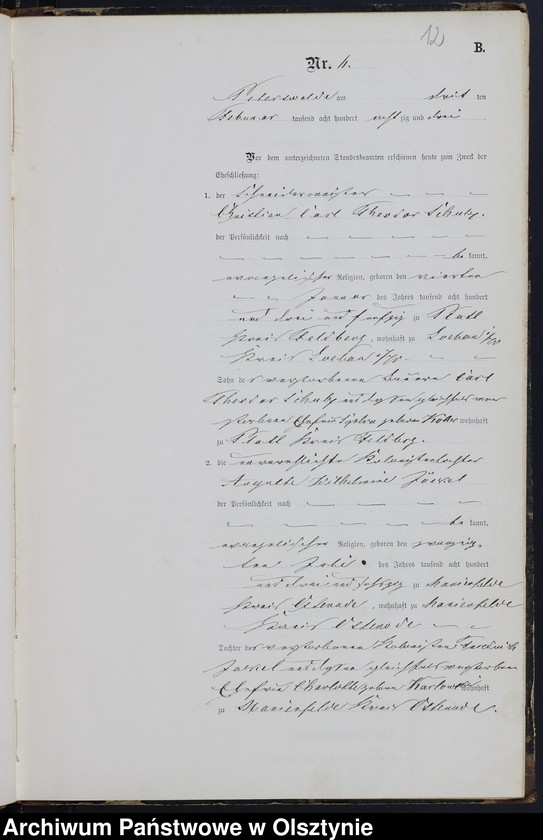 12)
B.
Nr. 4.
Peterswalde am drit ten
Februar tausend acht hundert acht zig und drei
Vor dem unterzeichneten Standesbeamten erschienen heute zum Zweck der
Eheschließung:
1. der Schneidermeister
Christian Carl Theodor Schulz.
der Persönlichkeit nach
be kannt,
evangelischer Religion, geboren den vierten
Januar des Jahres tausend acht hundert
und drei und funfzig zu
Kreis Feldberg, wohnhaft zu Loebau
Kreis Loebau
Sohn des verstorbenen Carl
Theodor Schulz und dessen gleichfalls ver
storbene Ehefrau geboren wohnhaft
zu Kreis Feldberg.
2. die unverehelichte Kolonistentochter
Auguste Wilhelmine Jäckel
der Persönlichkeit nach
be kannt,
evangelischer Religion, geboren den zwanzig
ten Juli des Jahres tausend acht hundert
und drei und sechszig zu Marienfelde
Kreis Osterode, wohnhaft zu Marienfelde
Kreis Osterode
Tochter des verstorbenen Kolonisten Ferdinand
Jäckel und dessen gleichfalls verstorbene
Ehefrau Charlotte geboren wohnhaft
zu Marienfelde Kreis Osterode.
Archiwum Państwowe w Olsztynie